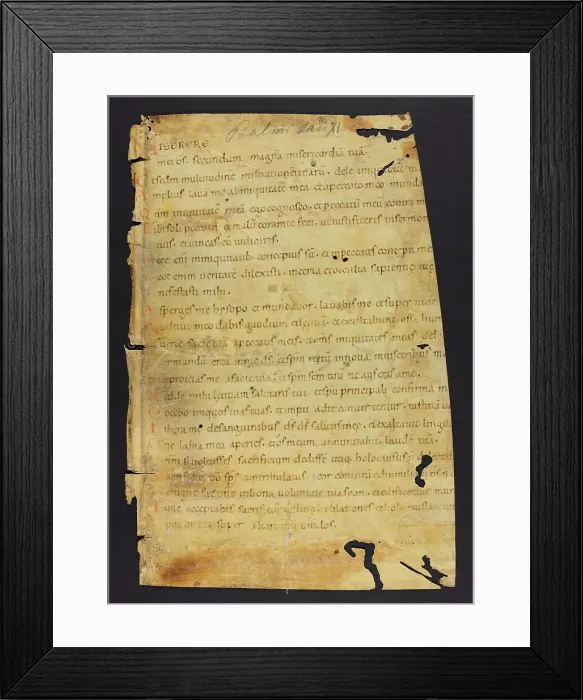 Psalmi saec XI
MISERERE
mei ds. secundum magnā misericordiā tuā.
tsedm multitudinē miserationū tuarū. dele iniquitatē m
mplius laua me abiniquitate mea & apeccato meo munda
ūm iniquitatē meā ego cognosco. & peccatū meū contra m
ibi soli peccaui & malū corā te feci. ut iustificeris insermon
tuis. & uincas cū iudicaris.
ecce enī in iniquitatib; conceptus sū. & inpeccatis concepit me
ecce enim ueritatē dilexisti. incerta & occulta sapientię tuę
nifestasti mihi.
sperges me hysopo & mundabor. lauabis me & super niue
uditui meo dabis gaudium & lętitiā. & exsultabunt ossa hum
uerte faciē tuā apeccatis meis. & om̄s iniquitates meas del
ormundū crea inme ds. & sp̄m rectū innoua inuisceribus me
eproicias me afacie tua. & sp̄m scm̄ tuū ne auferas ame.
edde mihi lętitiam salutaris tui. & sp̄u principali confirma m
ocebo iniquos uias tuas. & impii adte conuertentur.
ibera me desanguinibus ds ds salutis meę. & exaltabit lingu
ne labia mea aperies. & os meum annuntiabit laudē tuā.
ūm si uoluisses sacrificium dedissē utiq; holocaustis
sp̄s contribulatus. cor contritū & humiliatū
enigne fac dn̄e inbona uoluntate tua sion. & edificentur muri
unc acceptabis sacrificiū iustitię. oblationes & holocausta
inponent super altare tuū uitulos.